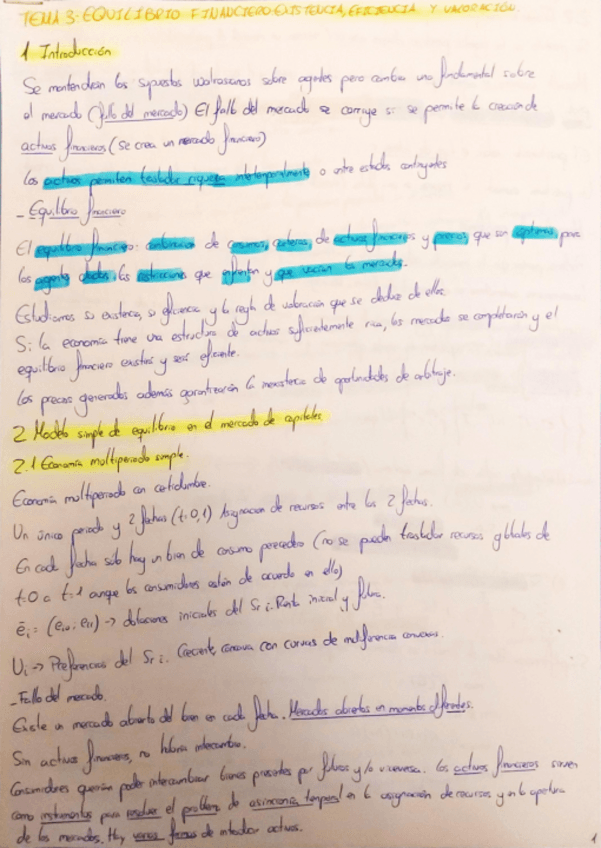 TEMA 3: EQUILIBRIO FINANCIERO: EXISTENCIA, EFICIENCIA Y VALORACIÓN.
1 Introducción
Se mantendrán los supuestos walrasianos sobre agentes pero cambia uno fundamental sobre
el mercado (fallo del mercado) El fallo del mercado se corrige si se permite la creación de
activos financieros (se crea un mercado financiero)
Los activos permiten trasladar riqueza intertemporalmente o entre estados contingentes
- Equilibrio financiero
El equilibrio financiero: combinación de consumos, carteras de activos financieros y precios que son óptimos para
los agentes dadas las restricciones que enfrentan y que vacían los mercados.
Estudiamos su existencia, su eficiencia y la regla de valoración que se deduce de ellos.
Si la economía tiene una estructura de activos suficientemente rica, los mercados se completarán y el
equilibrio financiero existirá y será eficiente.
Los precios generados además garantizarán la inexistencia de oportunidades de arbitraje.
2 Modelo simple de equilibrio en el mercado de capitales
2.1 Economía multiperiodo simple.
Economía multiperiodo con certidumbre.
Un único periodo y 2 fechas (t=0,1) Asignación de recursos entre las 2 fechas.
En cada fecha sólo hay un bien de consumo perecedero (no se pueden trasladar recursos globales de
t=0 a t=1 aunque los consumidores estén de acuerdo en ello)
ēi = (ei0, ei1) → dotaciones iniciales del Sr i. Renta inicial y futura.
Ui → Preferencias del Sr i. Creciente, cóncava con curvas de indiferencia convexas.
- Fallo del mercado.
Existe un mercado abierto del bien en cada fecha. Mercados abiertos en momentos diferentes.
Sin activos financieros, no habría intercambio.
Consumidores querrían poder intercambiar bienes presentes por futuros y/o viceversa. Los activos financieros sirven
como instrumentos para resolver el problema de asincronía temporal en la asignación de recursos y en la apertura
de los mercados. Hay varias formas de introducir activos.
1